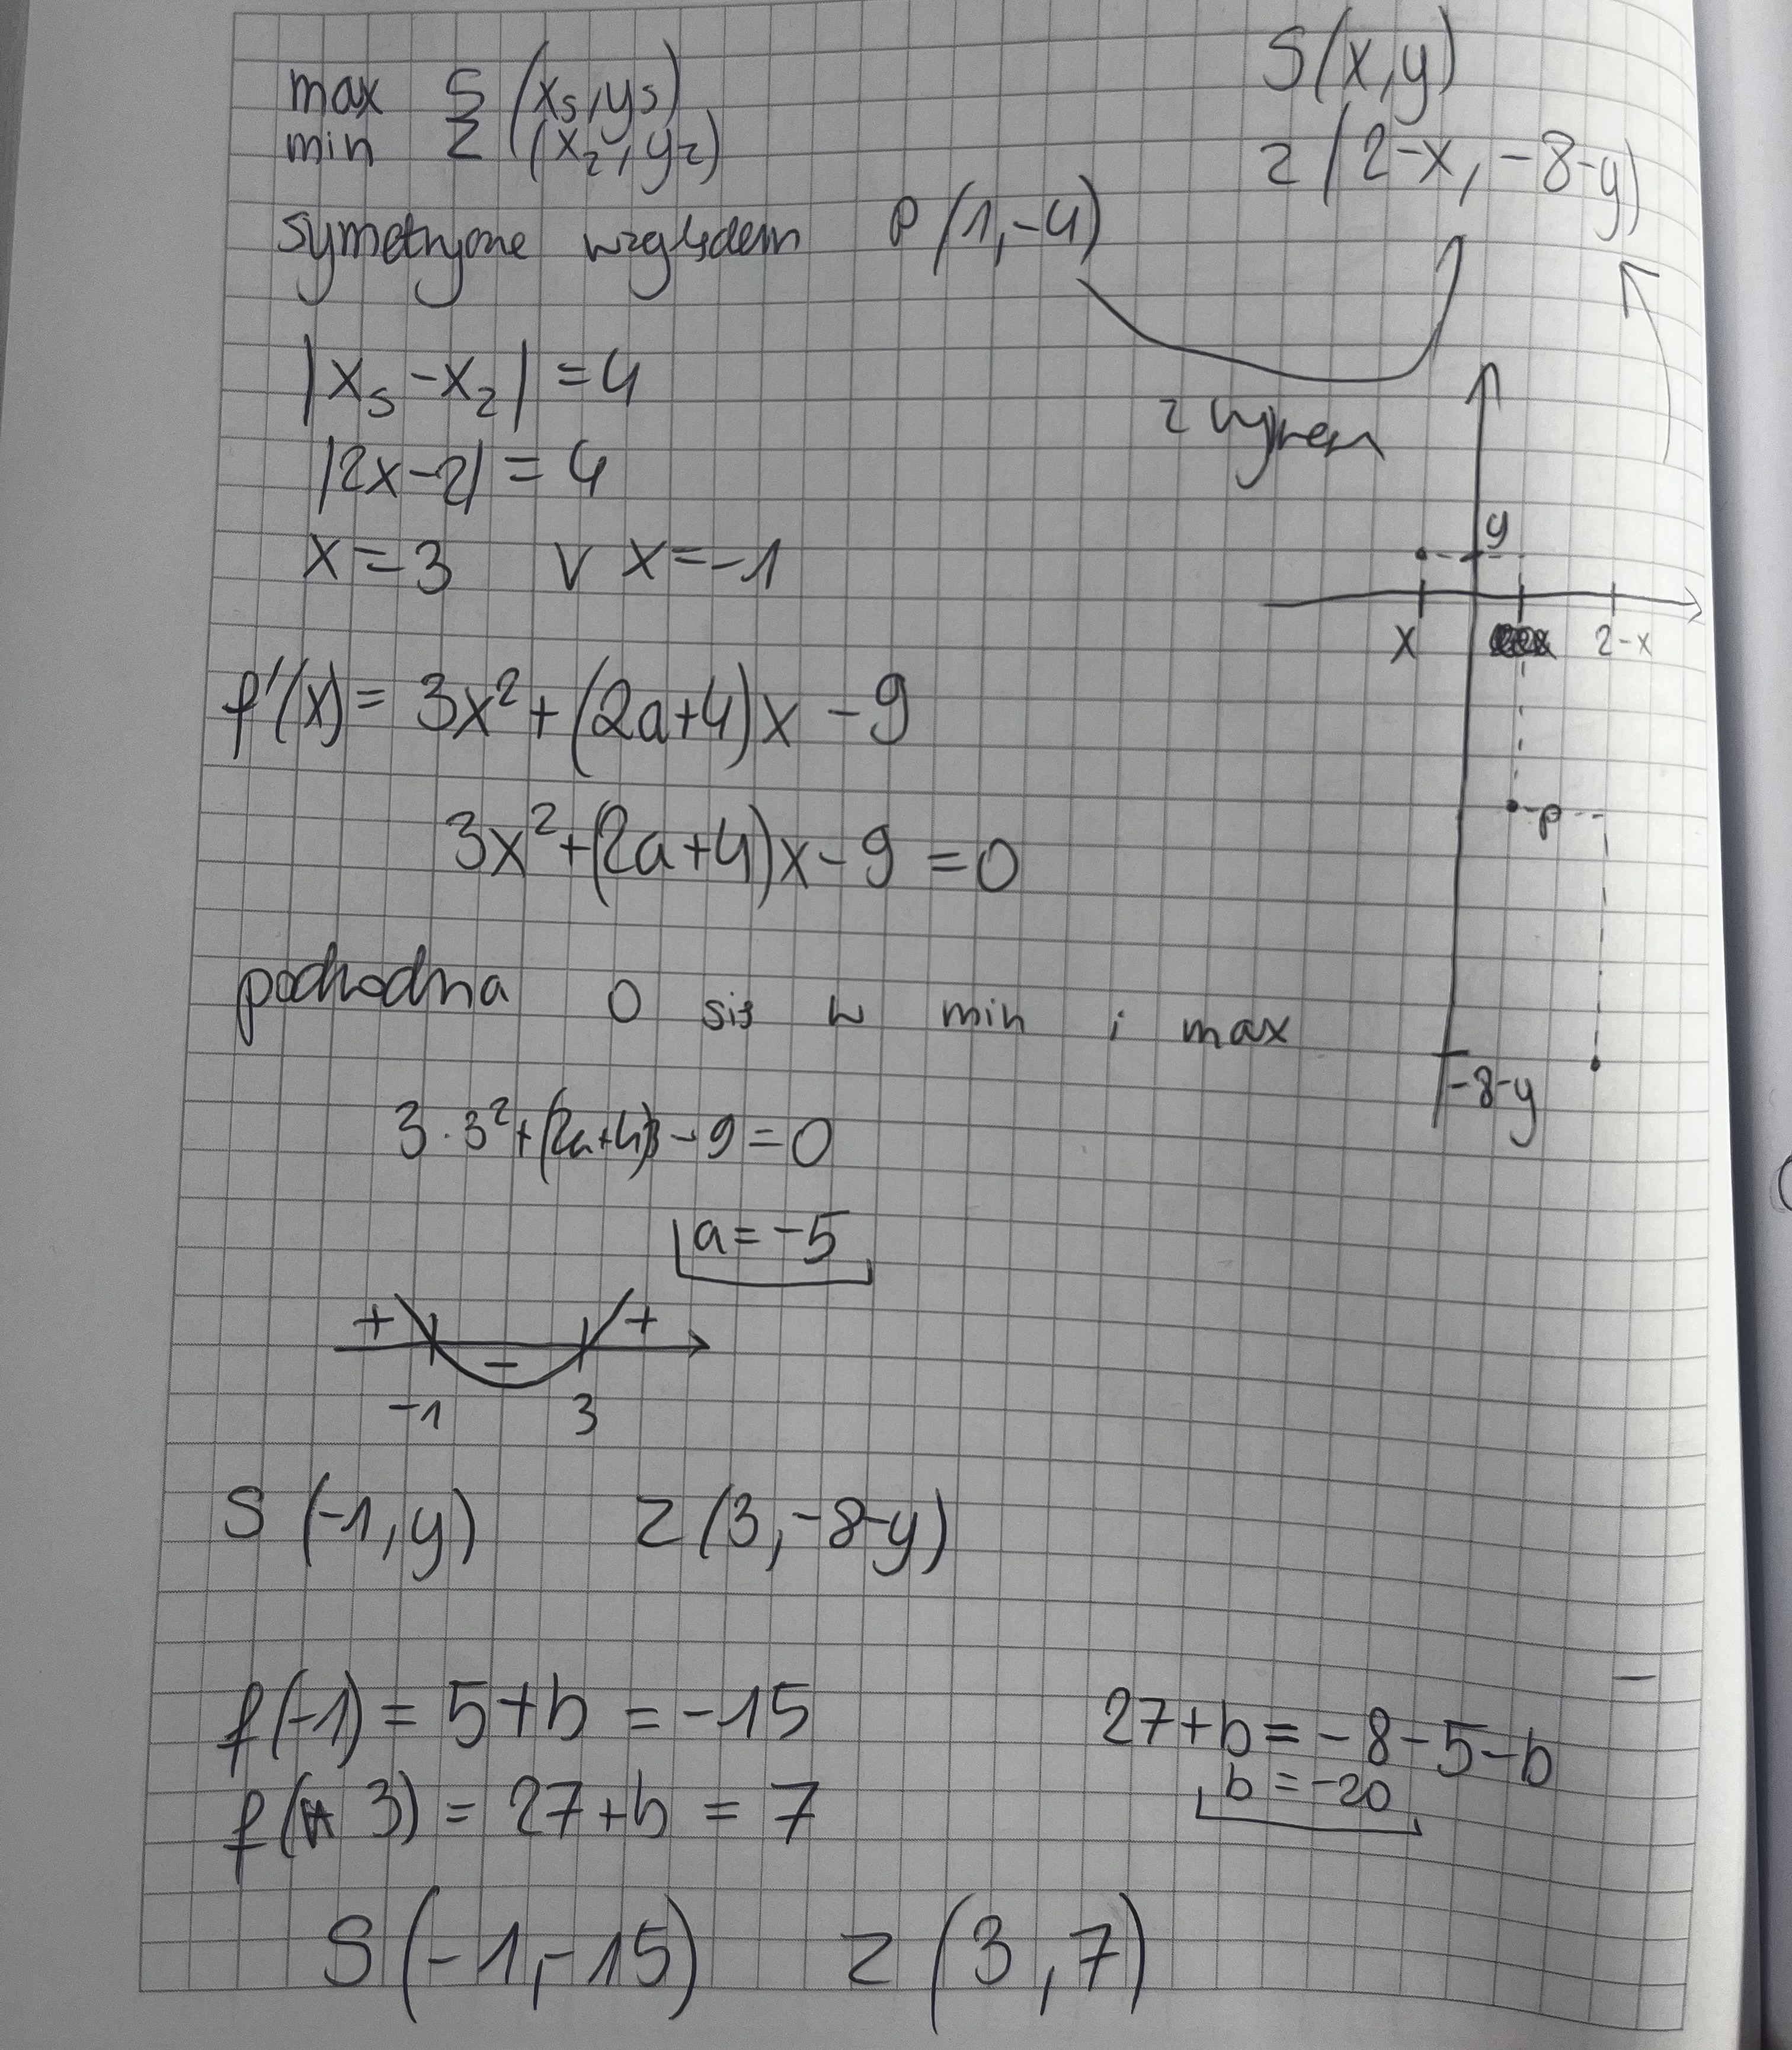 max S (xs, ys)
min Z (xz, yz)
S(x,y)
z (2-x, -8-y)
symetryczne względem P (1,-4)
|xs - xz| = 4
|2x-2| = 4
x = 3 v x = -1
z wykresu
y
x 2-x
P
-8-y
f'(x) = 3x² + (2a+4)x - 9
3x² + (2a+4)x - 9 = 0
pochodna 0 są w min i max
3 · 3² + (2a+4)3 - 9 = 0
a = -5
+ - +
-1 3
S (-1, y) Z (3, -8-y)
f(-1) = 5+b = -15
f(3) = 27+b = 7
27+b = -8-5-b
b = -20
S (-1, -15) Z (3, 7)